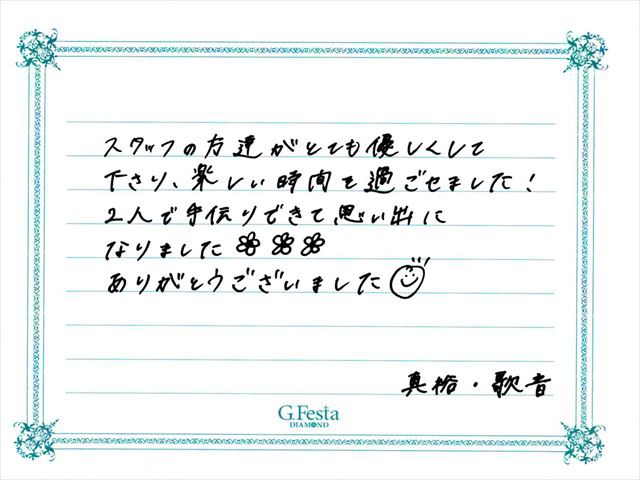 スタッフの方達がとても優しくして
下さり、楽しい時間を過ごせました!
2人で手伝りできて思い出に
なりました
ありがとうございました
真裕・歌音
G.Festa
DIAMOND